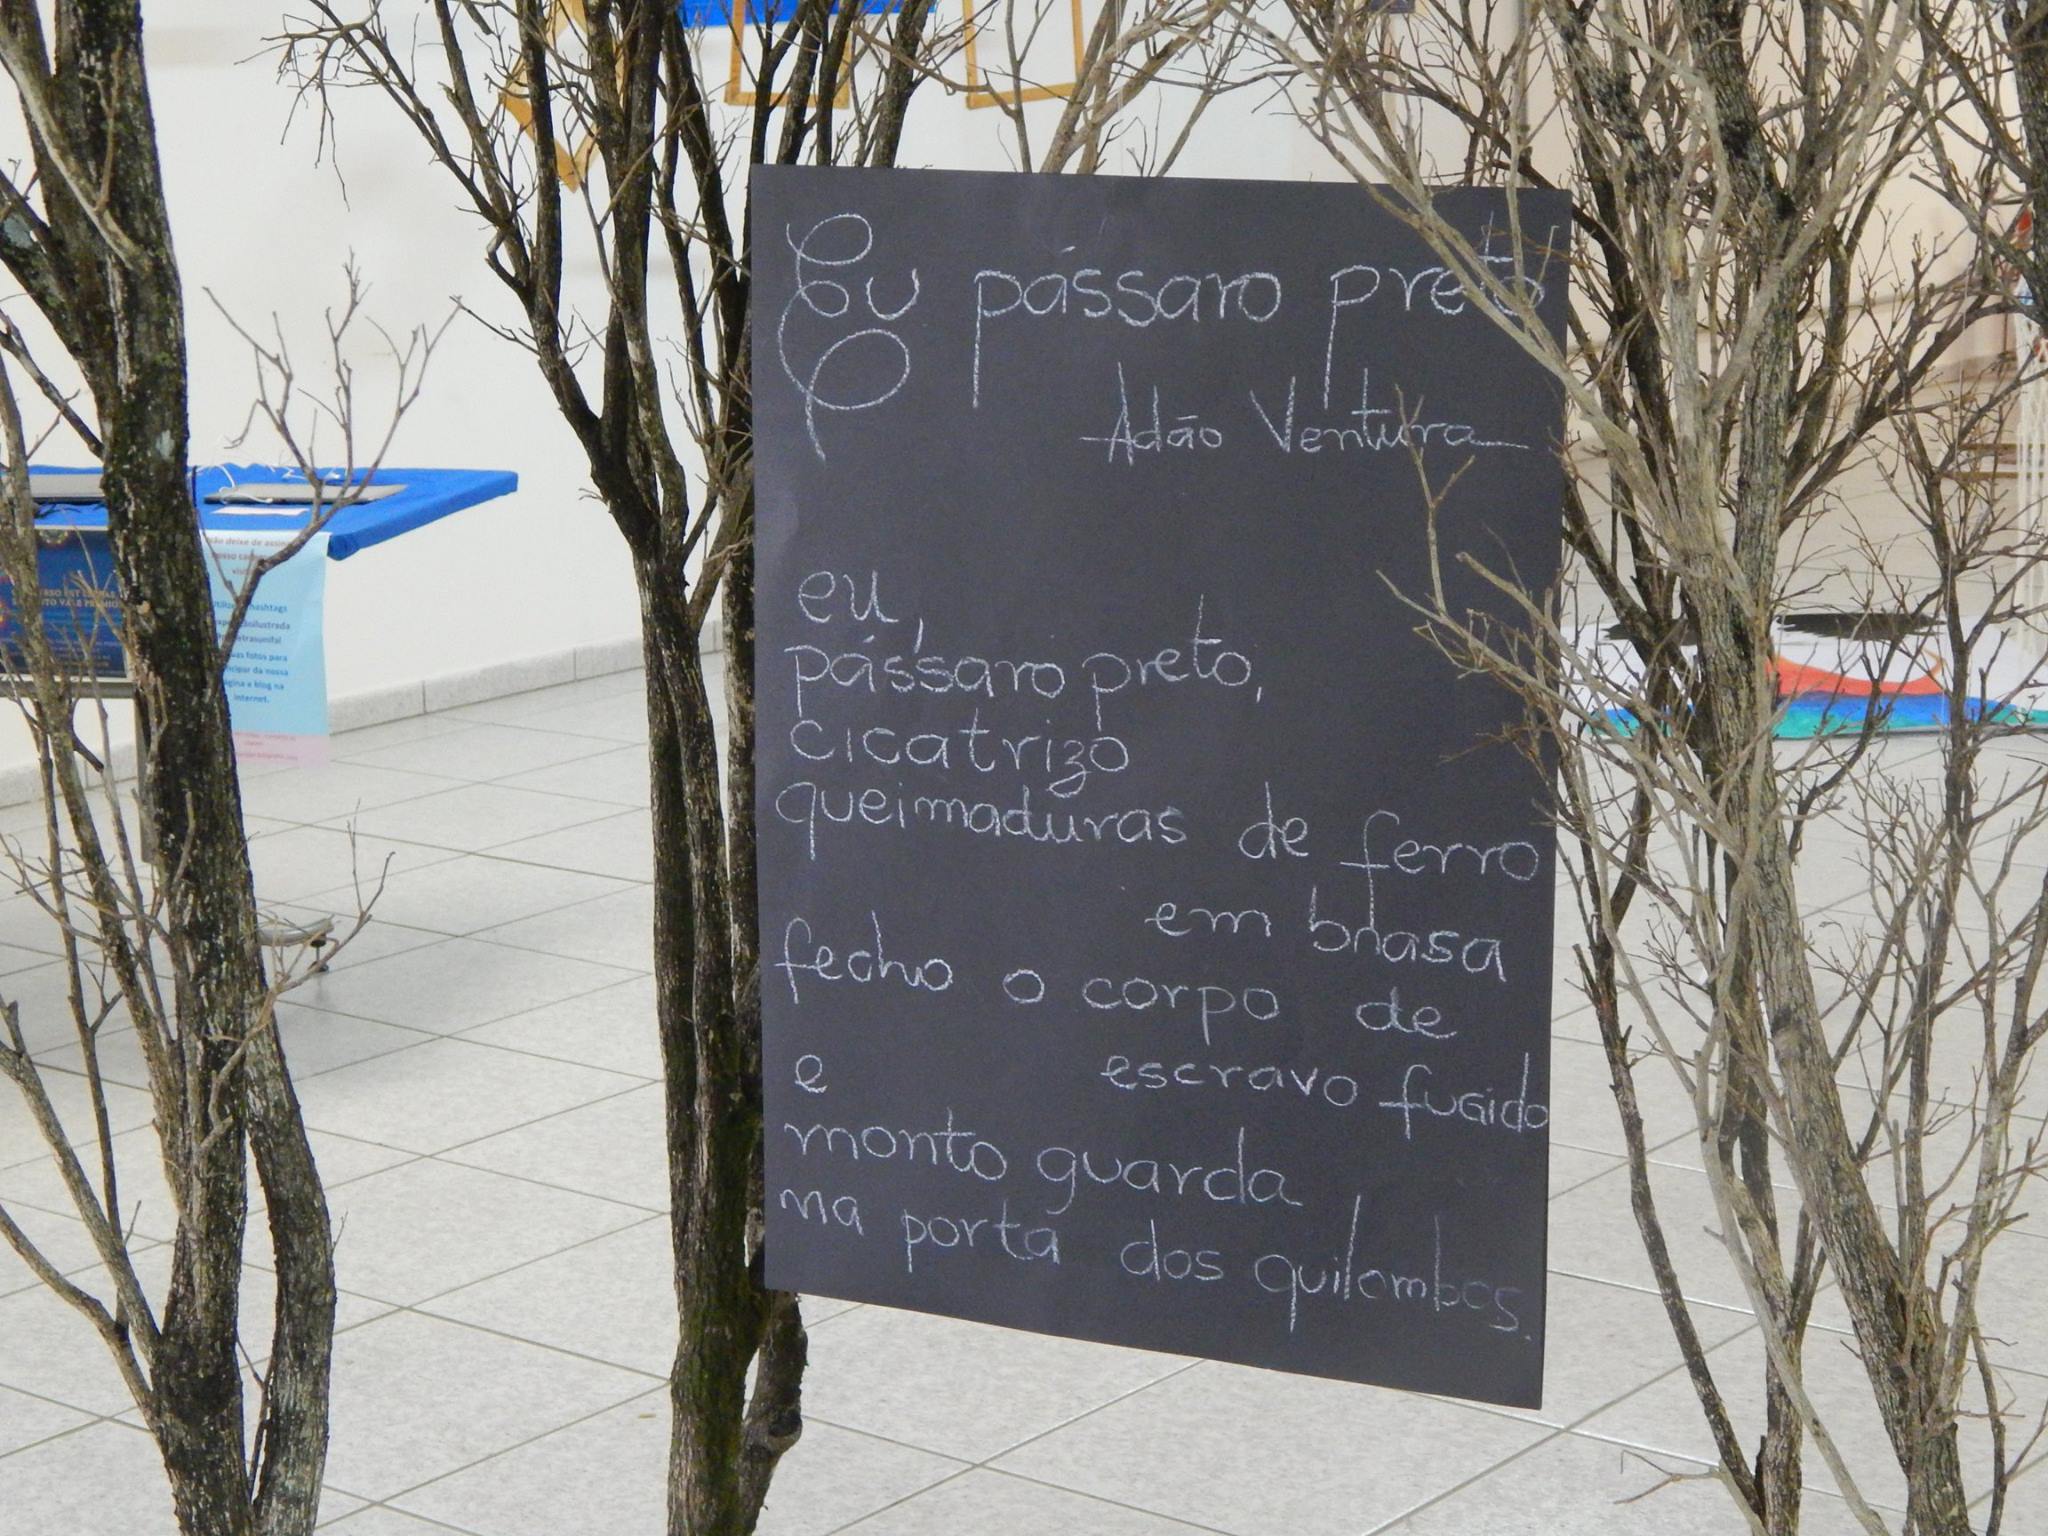 Eu pássaro preto
Adão Ventura
eu,
pássaro preto,
cicatrizo
queimaduras de ferro
em brasa
fecho o corpo de
escravo fugido
e
monto guarda
na porta dos quilombos.
deixe de
hashtags
fotos para
da nossa
página e blog na
internet.